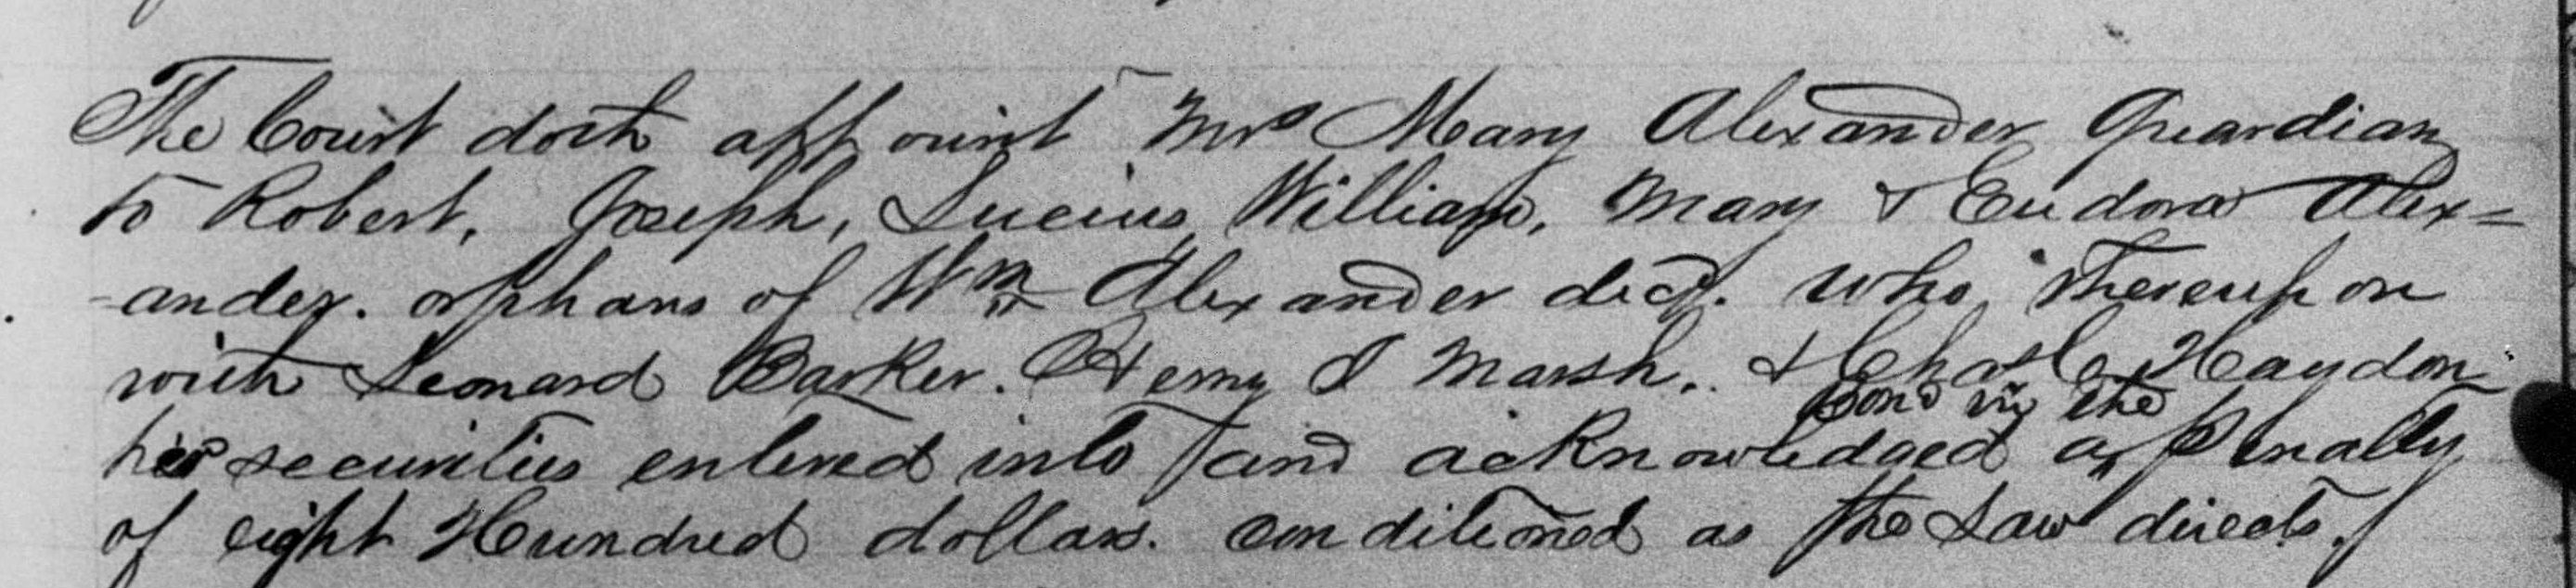 The Court doth appoint Mrs Mary Alexander Guardian
to Robert, Joseph, Lucius, William, Mary & Eudora Alex=
-ander. orphans of Wm Alexander decd. who, thereupon
with Leonard Barker. Henry I Marsh. & Chas C Haydon
bond in the
her securities entered into and acknowledged a penalty
of eight Hundred dollars. conditioned as the Law directs.